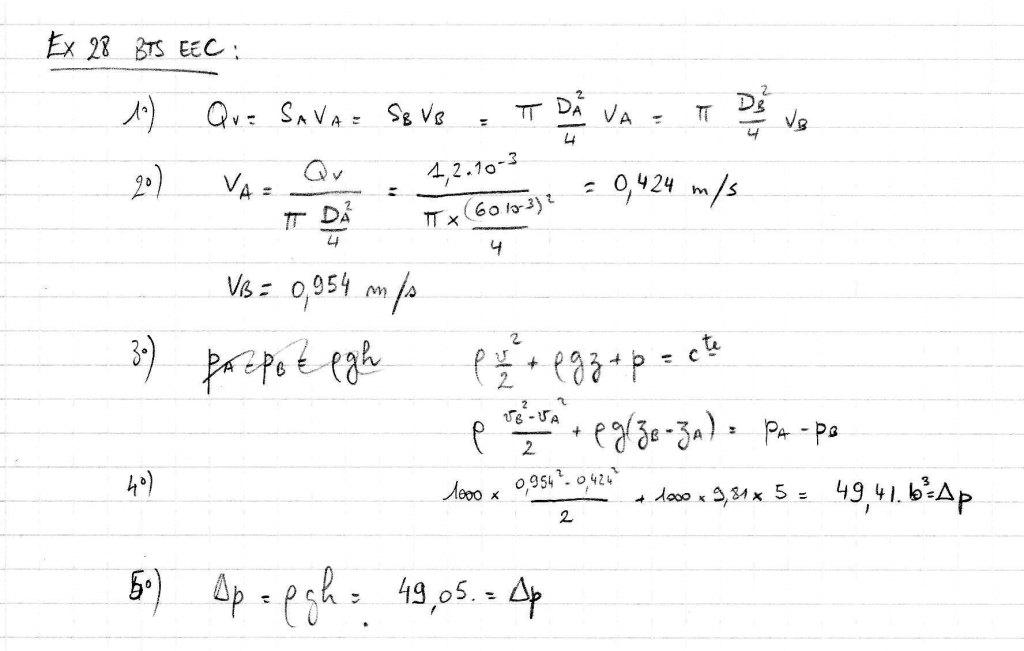 Ex 28 BTS EEC :
1°) Qv = SA VA = SB VB = π DA²/4 VA = π DB²/4 VB
2°) VA = Qv / (π DA²/4) = 1,2.10⁻³ / (π × (60 10⁻³)²/4) = 0,424 m/s
VB = 0,954 m/s
3°) pA - pB = ρgh ρ v²/2 + ρgz + p = cte
ρ (vB² - vA²)/2 + ρg(zB - zA) = pA - pB
4°) 1000 × (0,954² - 0,424²)/2 + 1000 × 9,81 × 5 = 49,41.10³ = Δp
5°) Δp = ρgh = 49,05. = Δp